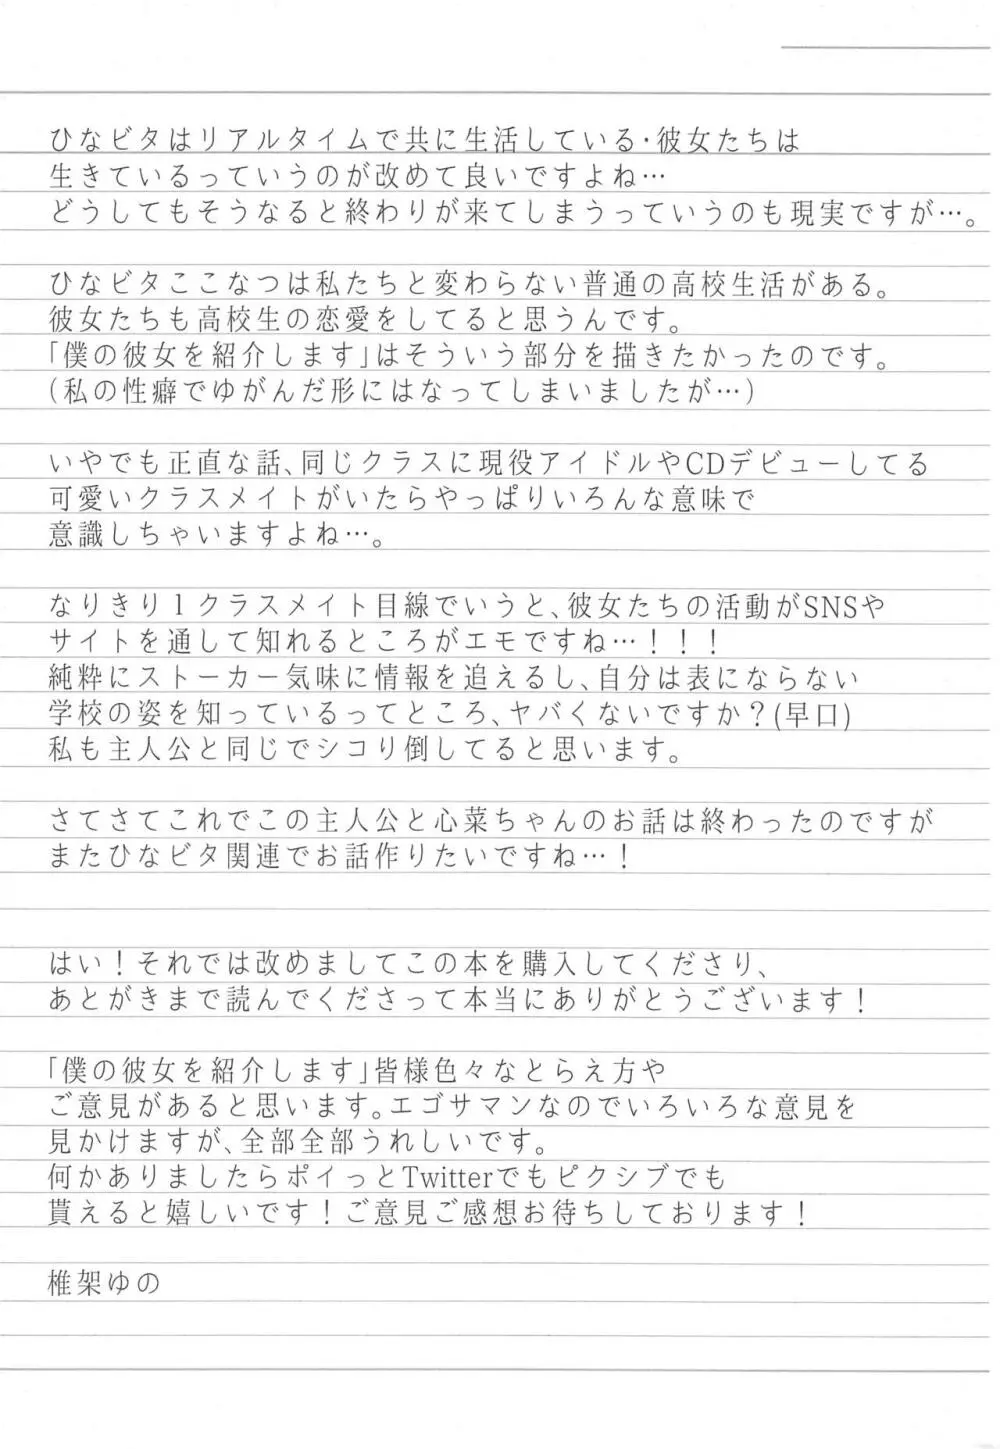 ひなビタはリアルタイムで共に生活している・彼女たちは
生きているっていうのが改めて良いですよね…
どうしてもそうなると終わりが来てしまうっていうのも現実ですが…。
ひなビタここなつは私たちと変わらない普通の高校生活がある。
彼女たちも高校生の恋愛をしてると思うんです。
「僕の彼女を紹介します」はそういう部分を描きたかったのです。
(私の性癖でゆがんだ形にはなってしまいましたが…)
いやでも正直な話、同じクラスに現役アイドルやCDデビューしてる
可愛いクラスメイトがいたらやっぱりいろんな意味で
意識しちゃいますよね…。
なりきり１クラスメイト目線でいうと、彼女たちの活動がSNSや
サイトを通して知れるところがエモですね…！！！
純粋にストーカー気味に情報を追えるし、自分は表にならない
学校の姿を知っているってところ、ヤバくないですか？(早口)
私も主人公と同じでシコり倒してると思います。
さてさてこれでこの主人公と心菜ちゃんのお話は終わったのですが
またひなビタ関連でお話作りたいですね…！
はい！それでは改めましてこの本を購入してくださり、
あとがきまで読んでくださって本当にありがとうございます！
「僕の彼女を紹介します」皆様色々なとらえ方や
ご意見があると思います。エゴサマンなのでいろいろな意見を
見かけますが、全部全部うれしいです。
何かありましたらポイっとTwitterでもピクシブでも
貰えると嬉しいです！ご意見ご感想お待ちしております！
椎架ゆの